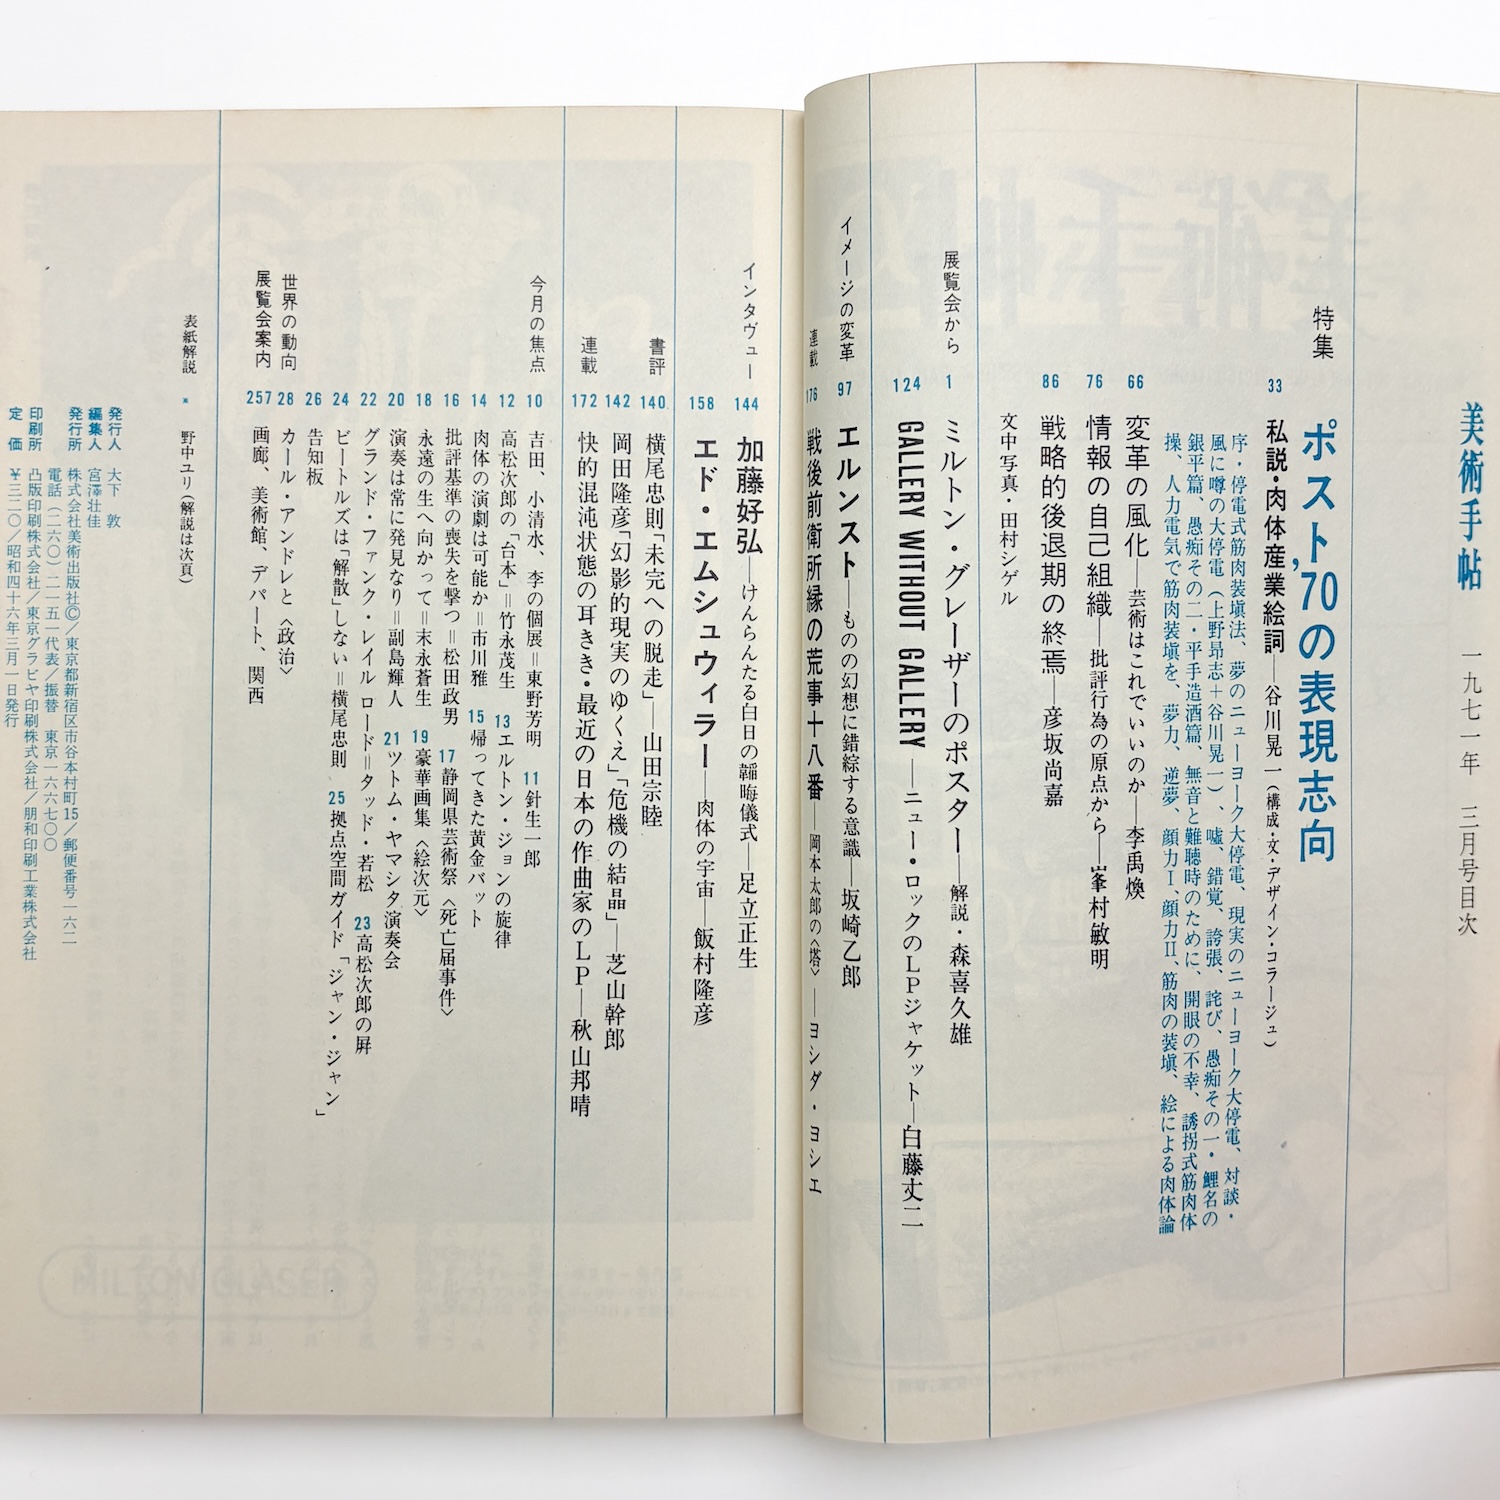 美術手帖 一九七一年 三月号目次
特集
ポスト'70の表現志向
33 私説・肉体産業絵詞──谷川晃一（構成・文・デザイン・コラージュ）
序・停電式筋肉装塡法、夢のニューヨーク大停電、現実のニューヨーク大停電、対談・
風に噂の大停電（上野昂志＋谷川晃一）、嘘、錯覚、誇張、詫び、愚痴その一・鯉名の
銀平篇、愚痴その二・平手造酒篇、無音と難聴時のために、開眼の不幸、誘拐式筋肉体
操、人力電気で筋肉装塡を、夢力、逆夢、顔力Ⅰ、顔力Ⅱ、筋肉の装塡、絵による肉体論
66 変革の風化──芸術はこれでいいのか──李禹煥
76 情報の自己組織──批評行為の原点から──峯村敏明
86 戦略的後退期の終焉──彦坂尚嘉
文中写真・田村シゲル
展覧会から
1 ミルトン・グレーザーのポスター──解説・森喜久雄
124 GALLERY WITHOUT GALLERY──ニュー・ロックのLPジャケット──白藤丈二
イメージの変革
97 エルンスト──ものの幻想に錯綜する意識──坂崎乙郎
連載
176 戦後前衛所縁の荒事十八番──岡本太郎の〈塔〉──ヨシダ・ヨシエ
インタヴュー
144 加藤好弘──けんらんたる白日の韜晦儀式──足立正生
158 エド・エムシュウィラー──肉体の宇宙──飯村隆彦
書評
140 横尾忠則「未完への脱走」──山田宗睦
142 岡田隆彦「幻影的現実のゆくえ」「危機の結晶」──芝山幹郎
連載
172 快的混沌状態の耳きき・最近の日本の作曲家のLP──秋山邦晴
今月の焦点
10 吉田、小清水、李の個展＝東野芳明 11 針生一郎
12 高松次郎の「台本」＝竹永茂生 13 エルトン・ジョンの旋律
14 肉体の演劇は可能か＝市川雅 15 帰ってきた黄金バット
16 批評基準の喪失を撃つ＝松田政男 17 静岡県芸術祭〈死亡届事件〉
18 永遠の生へ向かって＝末永蒼生 19 豪華画集〈絵次元〉
20 演奏は常に発見なり＝副島輝人 21 ツトム・ヤマシタ演奏会
22 グランド・ファンク・レイル ロード＝タッド・若松 23 高松次郎の屛
24 ビートルズは「解散」しない＝横尾忠則 25 拠点空間ガイド「ジャン・ジャン」
26 告知板
世界の動向
28 カール・アンドレと〈政治〉
展覧会案内
257 画廊、美術館、デパート、関西
表紙解説 * 野中ユリ（解説は次頁）
発行人 大下 敦
編集人 宮澤壮佳
発行所 株式会社美術出版社©／東京都新宿区市谷本村町15／郵便番号一六二
電話（二六〇）二一五一代表／振替 東京一六六七〇〇
印刷所 凸版印刷株式会社／東京グラビヤ印刷株式会社／朋和印刷工業株式会社
定 価 ￥三二〇／昭和四十六年三月一日発行
MILTON GLASER